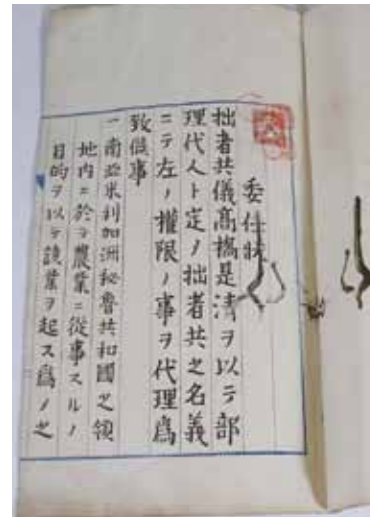 委任狀
拙者共儀髙橋是清ヲ以テ部
理代人ト定ノ拙者共之名義
ニテ左ノ權限ノ事ヲ代理爲
致候事
一南亞米利加洲秘魯共和國之領
地内ニ於テ農業ニ從事スルノ
目的ヲ以テ該業ヲ起ス爲ノ之